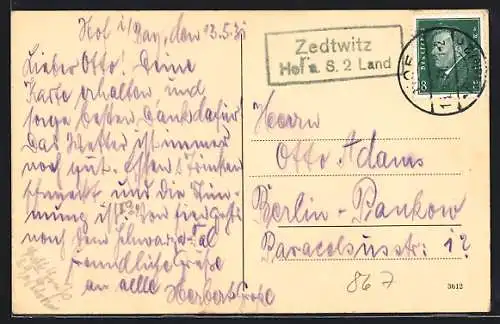 Hof i/Bay, den 13.5.31
Lieber Otto! Deine
Karte erhalten und
sage besten Dank dafür.
Das Wetter ist immer
noch gut. Essen & Trinken
schmeckt und die Stim-
mung ist
nach dem Schwarza-Tal
Freundliche Grüße
an alle Herbert Große
Zedtwitz
Hof a. S. 2 Land
8
HOF
Herrn
Otto Adams
Berlin-Pankow
Paracelsusstr. 12
867
3612